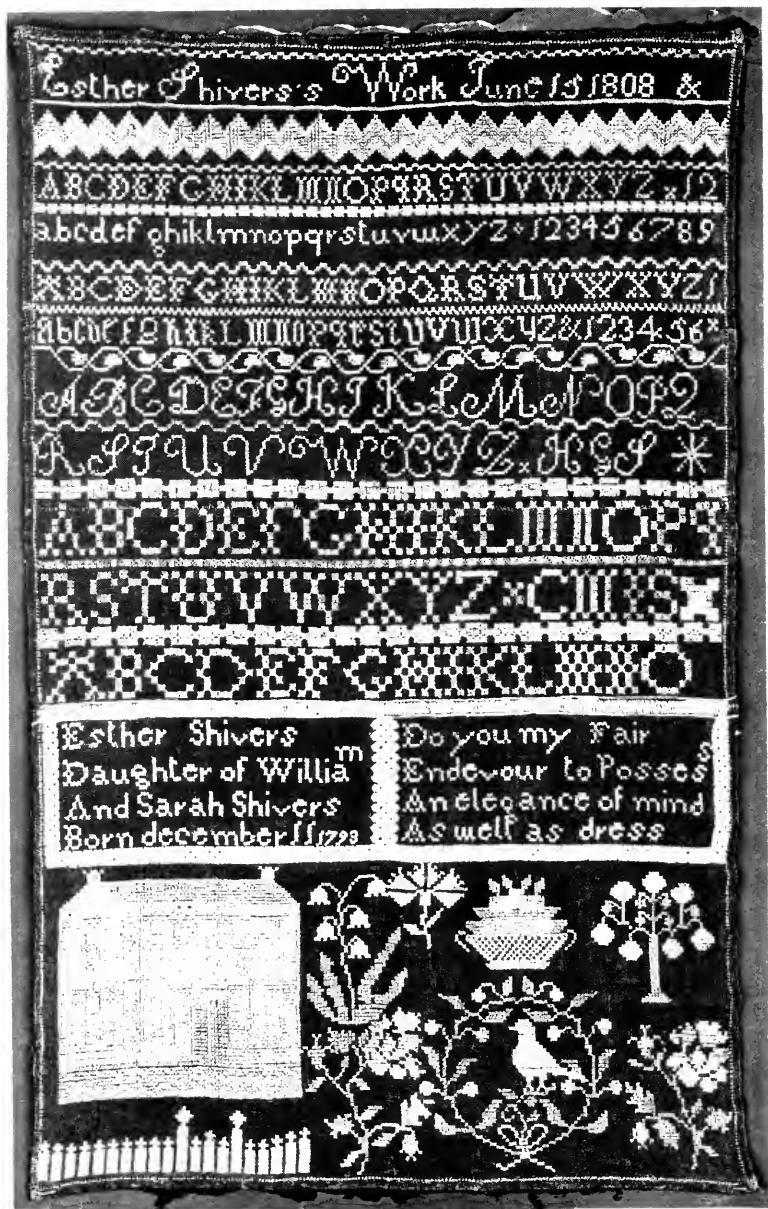 Esther Shivers's Work June 15 1808 &
A B C D E F G H I K L M N O P Q R S T U V W X Y Z x 1 2
a b c d e f g h i k l m n o p q r s t u v w x y z 1 2 3 4 5 6 7 8 9
A B C D E F G H I K L M N O P Q R S T U V W X Y Z 1
a b c d e f g h i k L m n o p q r s t u v w x y z & 1 2 3 4 5 6 x
A B C D E F G H I K L M N O P Q
R S T U V W X Y Z x H G S
A B C D E F G H I K L M N O P Q
R S T U V W X Y Z x C M S
A B C D E F G H I K L M N O
Esther Shivers
Daughter of William
And Sarah Shivers
Born december 11 1793
Do you my Fair
Endevour to Possess
An elegance of mind
As well as dress